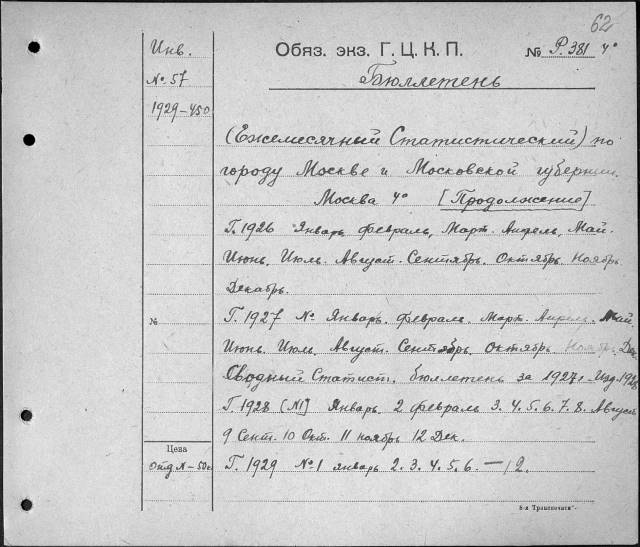 62
Инв.
№ 57
1929-450
Обяз. экз. Г. Ц. К. П.
№ Р.381 4°
Бюллетень
(Ежемесячный Статистический) по
городу Москве и Московской губернии.
Москва 4° [Продолжение]
Г. 1926 Январь февраль, Март. Апрель, Май.
Июнь. Июль. Август. Сентябрь. Октябрь. Ноябрь
Декабрь.
№
Г. 1927 № Январь. февраль. Март. Апрель. Май
Июнь. Июль. Август. Сентябрь. Октябрь Ноябрь. Дек
Сводный Статист. бюллетень за 1927г. Изд. 1928
Г. 1928 [№1] Январь. 2 февраль 3. 4. 5. 6. 7. 8. Август
9 Сент. 10 Окт. 11 ноябрь 12 Дек.
Цена
Отд № - 50к
Г. 1929 №1 январь 2. 3. 4. 5. 6. — 12.
8-я Транспечати".